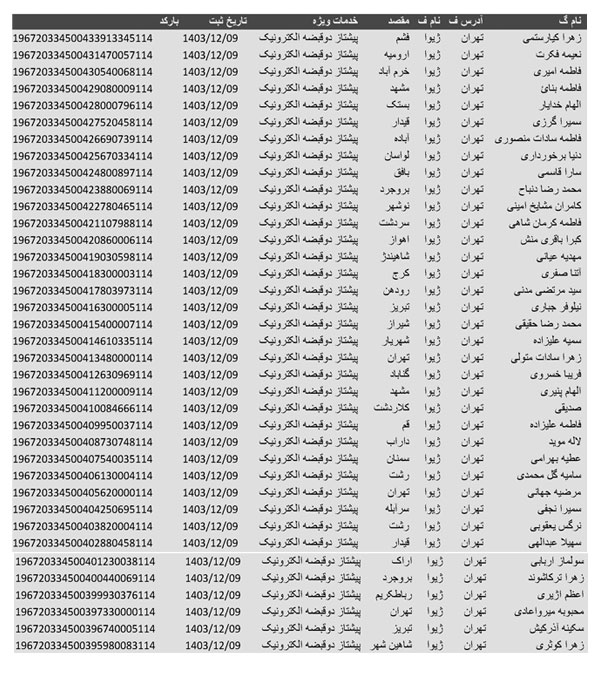 نام گ آدرس ف نام ف مقصد خدمات ویژه تاریخ ثبت بارکد
زهرا کیارستمی تهران ژیوا فشم پیشتاز دوقبضه الکترونیک 1403/12/09 196720334500433913345114
نعیمه فکرت تهران ژیوا ارومیه پیشتاز دوقبضه الکترونیک 1403/12/09 196720334500431470057114
فاطمه امیری تهران ژیوا خرم آباد پیشتاز دوقبضه الکترونیک 1403/12/09 196720334500430540068114
فاطمه بنائ تهران ژیوا مشهد پیشتاز دوقبضه الکترونیک 1403/12/09 196720334500429080009114
الهام خدایار تهران ژیوا بستک پیشتاز دوقبضه الکترونیک 1403/12/09 196720334500428000796114
سمیرا گرزی تهران ژیوا قیدار پیشتاز دوقبضه الکترونیک 1403/12/09 196720334500427520458114
فاطمه سادات منصوری تهران ژیوا آباده پیشتاز دوقبضه الکترونیک 1403/12/09 196720334500426690739114
دنیا برخورداری تهران ژیوا لواسان پیشتاز دوقبضه الکترونیک 1403/12/09 196720334500425670334114
سارا قاسمی تهران ژیوا بافق پیشتاز دوقبضه الکترونیک 1403/12/09 196720334500424800897114
محمد رضا دنباح تهران ژیوا بروجرد پیشتاز دوقبضه الکترونیک 1403/12/09 196720334500423880069114
کامران مشایخ امینی تهران ژیوا نوشهر پیشتاز دوقبضه الکترونیک 1403/12/09 196720334500422780465114
فاطمه کرمان شاهی تهران ژیوا سردشت پیشتاز دوقبضه الکترونیک 1403/12/09 196720334500421107988114
کبرا باقری منش تهران ژیوا اهواز پیشتاز دوقبضه الکترونیک 1403/12/09 196720334500420860006114
مهدیه عیانی تهران ژیوا شاهیندژ پیشتاز دوقبضه الکترونیک 1403/12/09 196720334500419030598114
آتنا صفری تهران ژیوا کرج پیشتاز دوقبضه الکترونیک 1403/12/09 196720334500418300003114
سید مرتضی مدنی تهران ژیوا رودهن پیشتاز دوقبضه الکترونیک 1403/12/09 196720334500417803973114
نیلوفر جباری تهران ژیوا تبریز پیشتاز دوقبضه الکترونیک 1403/12/09 196720334500416300005114
محمد رضا حقیقی تهران ژیوا شیراز پیشتاز دوقبضه الکترونیک 1403/12/09 196720334500415400007114
سمیه علیزاده تهران ژیوا شهریار پیشتاز دوقبضه الکترونیک 1403/12/09 196720334500414610335114
زهرا سادات متولی تهران ژیوا تهران پیشتاز دوقبضه الکترونیک 1403/12/09 196720334500413480000114
فریبا خسروی تهران ژیوا گناباد پیشتاز دوقبضه الکترونیک 1403/12/09 196720334500412630969114
الهام پنیری تهران ژیوا مشهد پیشتاز دوقبضه الکترونیک 1403/12/09 196720334500411200009114
صدیقی تهران ژیوا کلاردشت پیشتاز دوقبضه الکترونیک 1403/12/09 196720334500410084666114
فاطمه علیزاده تهران ژیوا قم پیشتاز دوقبضه الکترونیک 1403/12/09 196720334500409950037114
لاله موید تهران ژیوا داراب پیشتاز دوقبضه الکترونیک 1403/12/09 196720334500408730748114
عطیه بهرامی تهران ژیوا سمنان پیشتاز دوقبضه الکترونیک 1403/12/09 196720334500407540035114
سامیه گل محمدی تهران ژیوا رشت پیشتاز دوقبضه الکترونیک 1403/12/09 196720334500406130004114
مرضیه جهانی تهران ژیوا تهران پیشتاز دوقبضه الکترونیک 1403/12/09 196720334500405620000114
سمیرا نجفی تهران ژیوا سرآبله پیشتاز دوقبضه الکترونیک 1403/12/09 196720334500404250695114
نرگس یعقوبی تهران ژیوا رشت پیشتاز دوقبضه الکترونیک 1403/12/09 196720334500403820004114
سهیلا عبدالهی تهران ژیوا قیدار پیشتاز دوقبضه الکترونیک 1403/12/09 196720334500402880458114
سولماز اربابی تهران ژیوا اراک پیشتاز دوقبضه الکترونیک 1403/12/09 196720334500401230038114
زهرا ترکاشوند تهران ژیوا بروجرد پیشتاز دوقبضه الکترونیک 1403/12/09 196720334500400440069114
اعظم اژیری تهران ژیوا رباطکریم پیشتاز دوقبضه الکترونیک 1403/12/09 196720334500399930376114
محبوبه میرواعادی تهران ژیوا تهران پیشتاز دوقبضه الکترونیک 1403/12/09 196720334500397330000114
سکینه آذرکیش تهران ژیوا تبریز پیشتاز دوقبضه الکترونیک 1403/12/09 196720334500396740005114
زهرا کوثری تهران ژیوا شاهین شهر پیشتاز دوقبضه الکترونیک 1403/12/09 196720334500395980083114